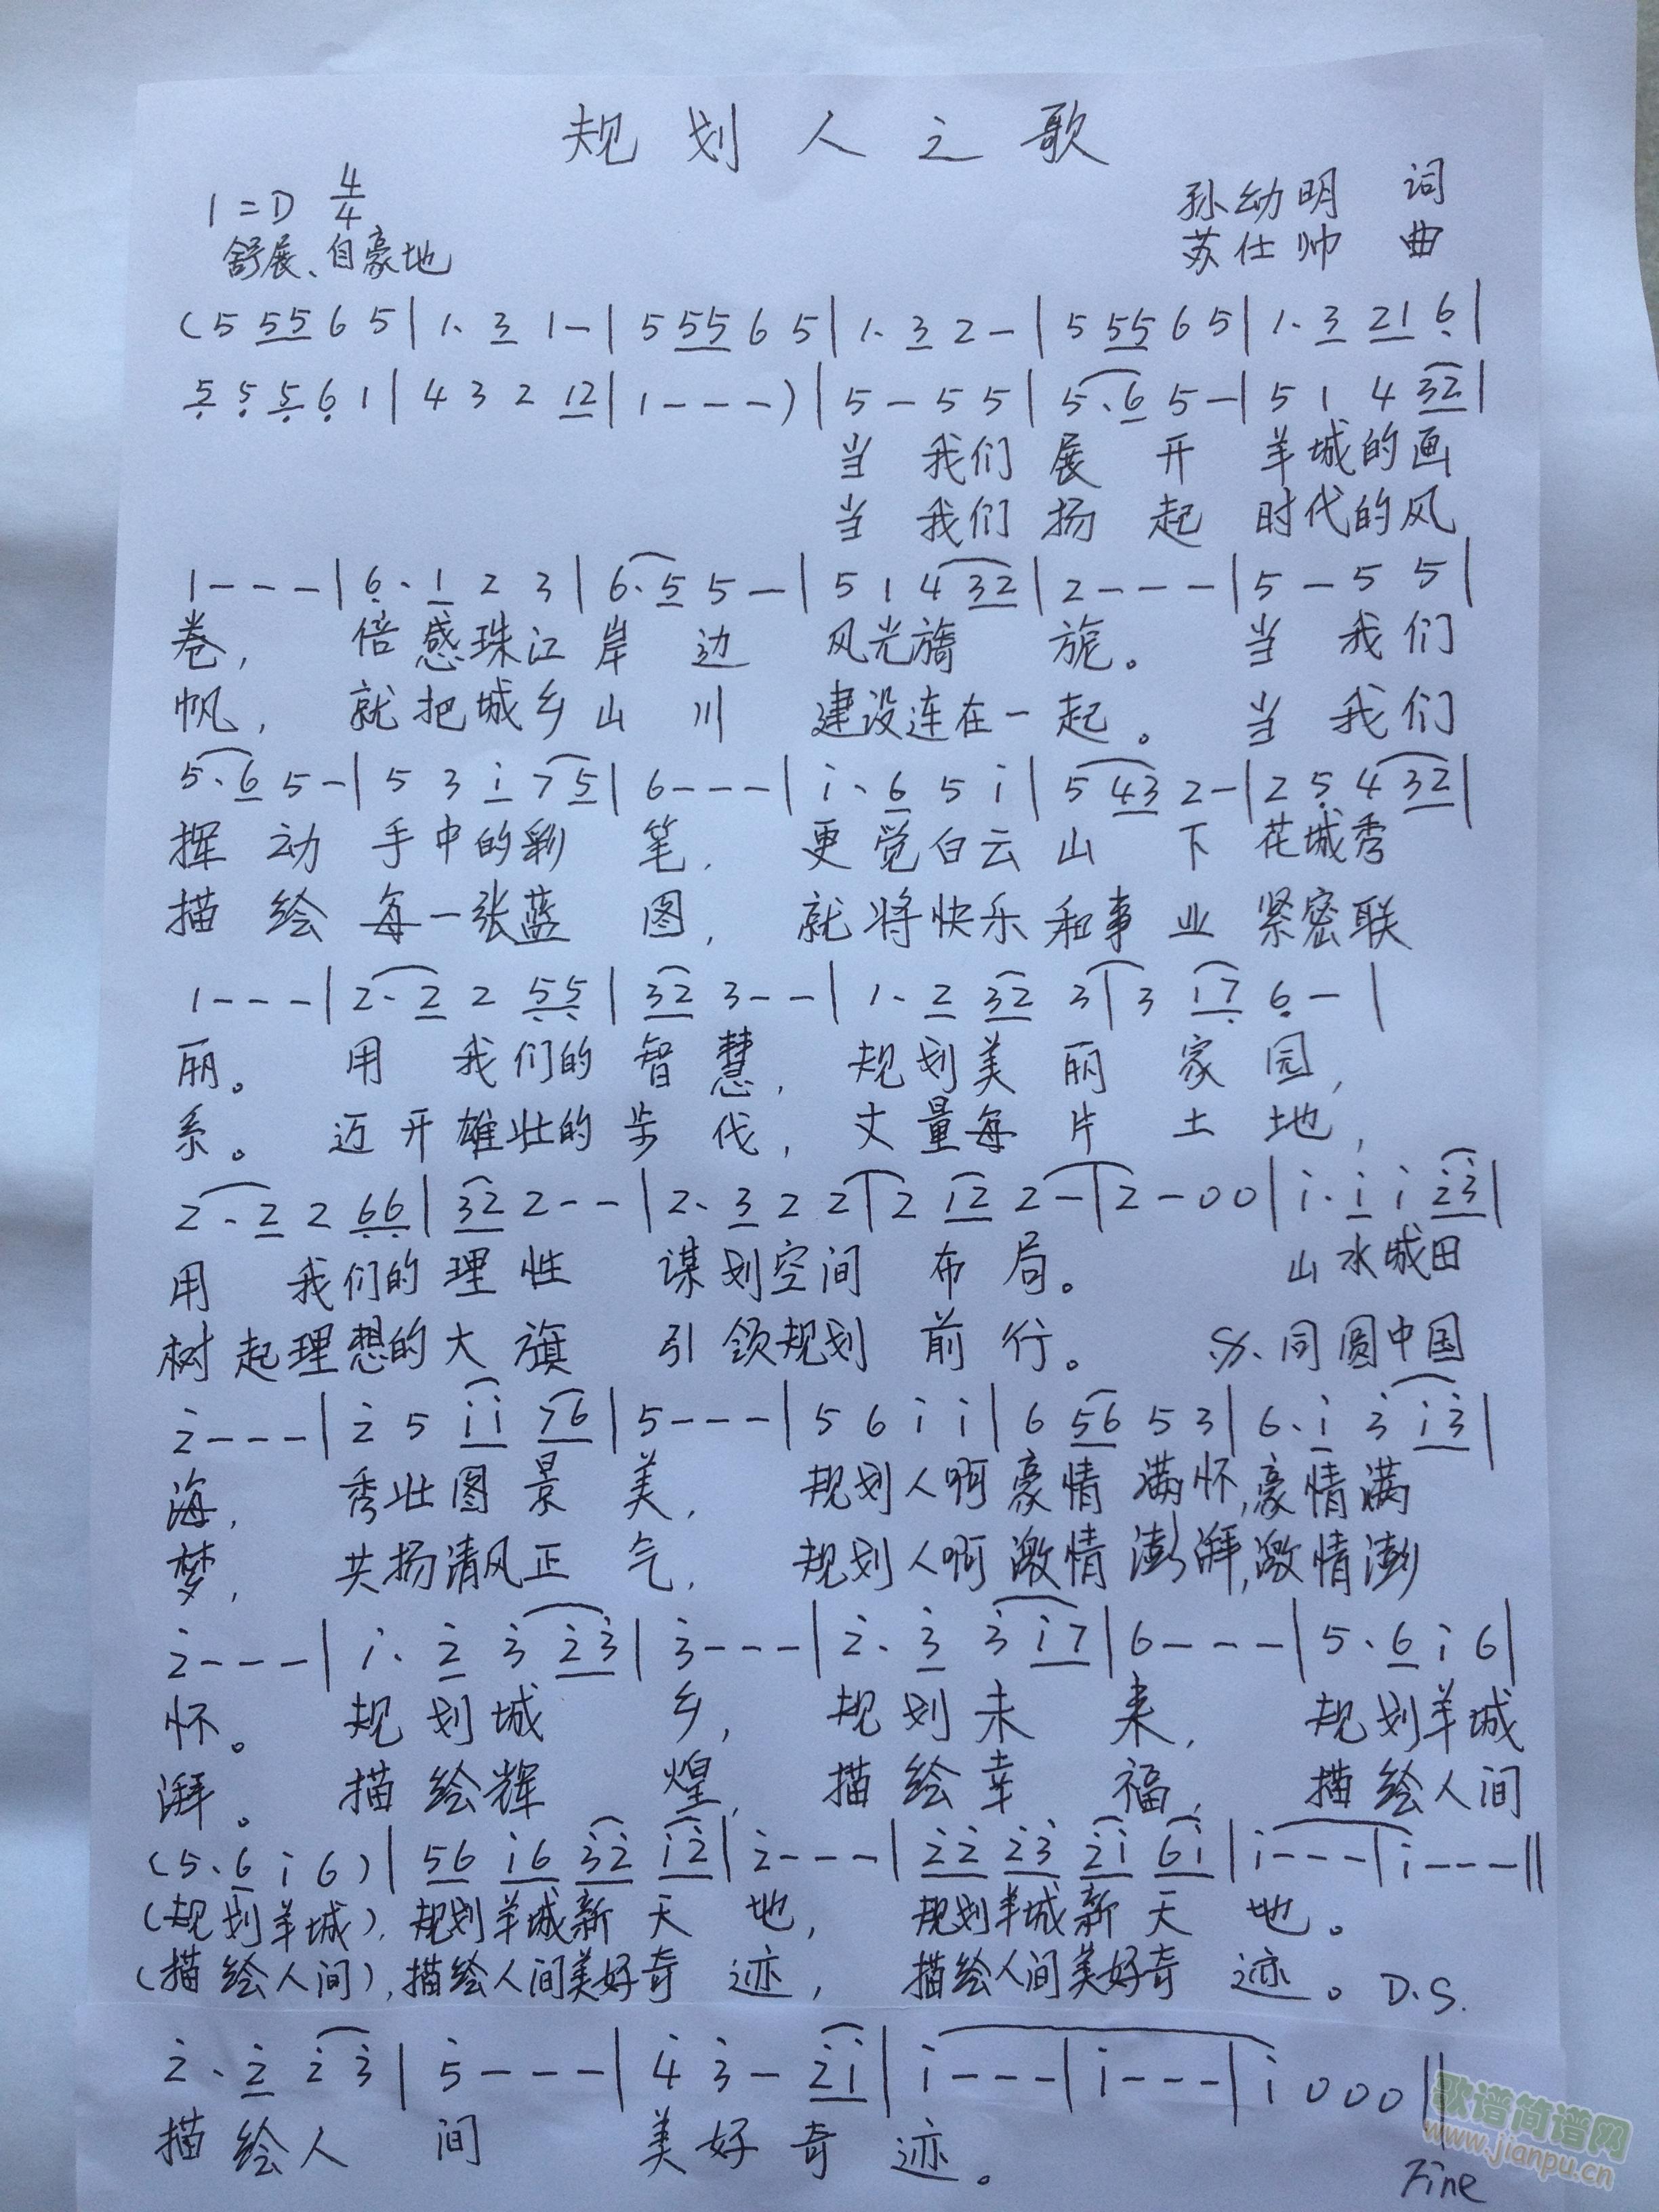 规划人之歌
1=D 4/4
孙幼明 词
舒展、自豪地
苏仕帅 曲
(5 55 6 5 | 1. 3 1 - | 5 55 6 5 | 1. 3 2 - | 5 55 6 5 | 1. 3 21 6 |
5 5 5 6 1 | 4 3 2 12 | 1 - - - ) | 5 - 5 5 | 5. 6 5 - | 5 1 4 32 |
当 我们 展 开 羊城的画
当 我们 扬 起 时代的风
1 - - - | 6. 1 2 3 | 6. 5 5 - | 5 1 4 32 | 2 - - - | 5 - 5 5 |
卷, 倍感珠江岸边 风光旖 旎。 当 我们
帆, 就把城乡山川 建设连在一起。 当 我们
5. 6 5 - | 5 3 i 7 5 | 6 - - - | i. 6 5 i | 5 43 2 - | 2 5 4 32 |
挥 动 手中的彩 笔, 更觉白云山 下 花城秀
描 绘 每一张蓝 图, 就将快乐和事 业 紧密联
1 - - - | 2. 2 2 55 | 32 3 - - | 1. 2 32 3 | 3 i7 6 - |
丽。 用 我们的 智 慧, 规划美 丽 家 园,
系。 迈开雄壮的步 伐, 丈量每 片 土 地,
2. 2 2 66 | 32 2 - - | 2. 3 2 2 | 2 12 2 - | 2 - 0 0 | i. i i 23 |
用 我们的理 性 谋划空间 布 局。 山水城田
树起理想的大 旗 引领规划 前 行。 𝄋. 同圆中国
2 - - - | 2 5 ii 76 | 5 - - - | 5 6 i i | 6 56 5 3 | 6. i 3 i3 |
海, 秀壮图景 美, 规划人啊豪情 满怀,豪情满
梦, 共扬清风正 气, 规划人啊激情澎湃,激情澎
2 - - - | i. 2 3 23 | 3 - - - | 2. 3 3 i7 | 6 - - - | 5. 6 i 6 |
怀。 规划城 乡, 规划未 来, 规划羊城
湃。 描绘辉 煌, 描绘幸 福, 描绘人间
(5. 6 i 6) | 56 i6 32 i2 | 2 - - - | 22 23 2i 6i | i - - - | i - - - ||
(规划羊城), 规划羊城新天 地, 规划羊城新天 地。
(描绘人间), 描绘人间美好奇 迹, 描绘人间美好奇 迹。 D.S.
2. 2 2 3 | 5 - - - | 4 3 - 2i | i - - - | i - - - | i 0 0 0 ||
描绘人 间 美好奇 迹。
Fine
歌谱简谱网
www.jianpu.cn